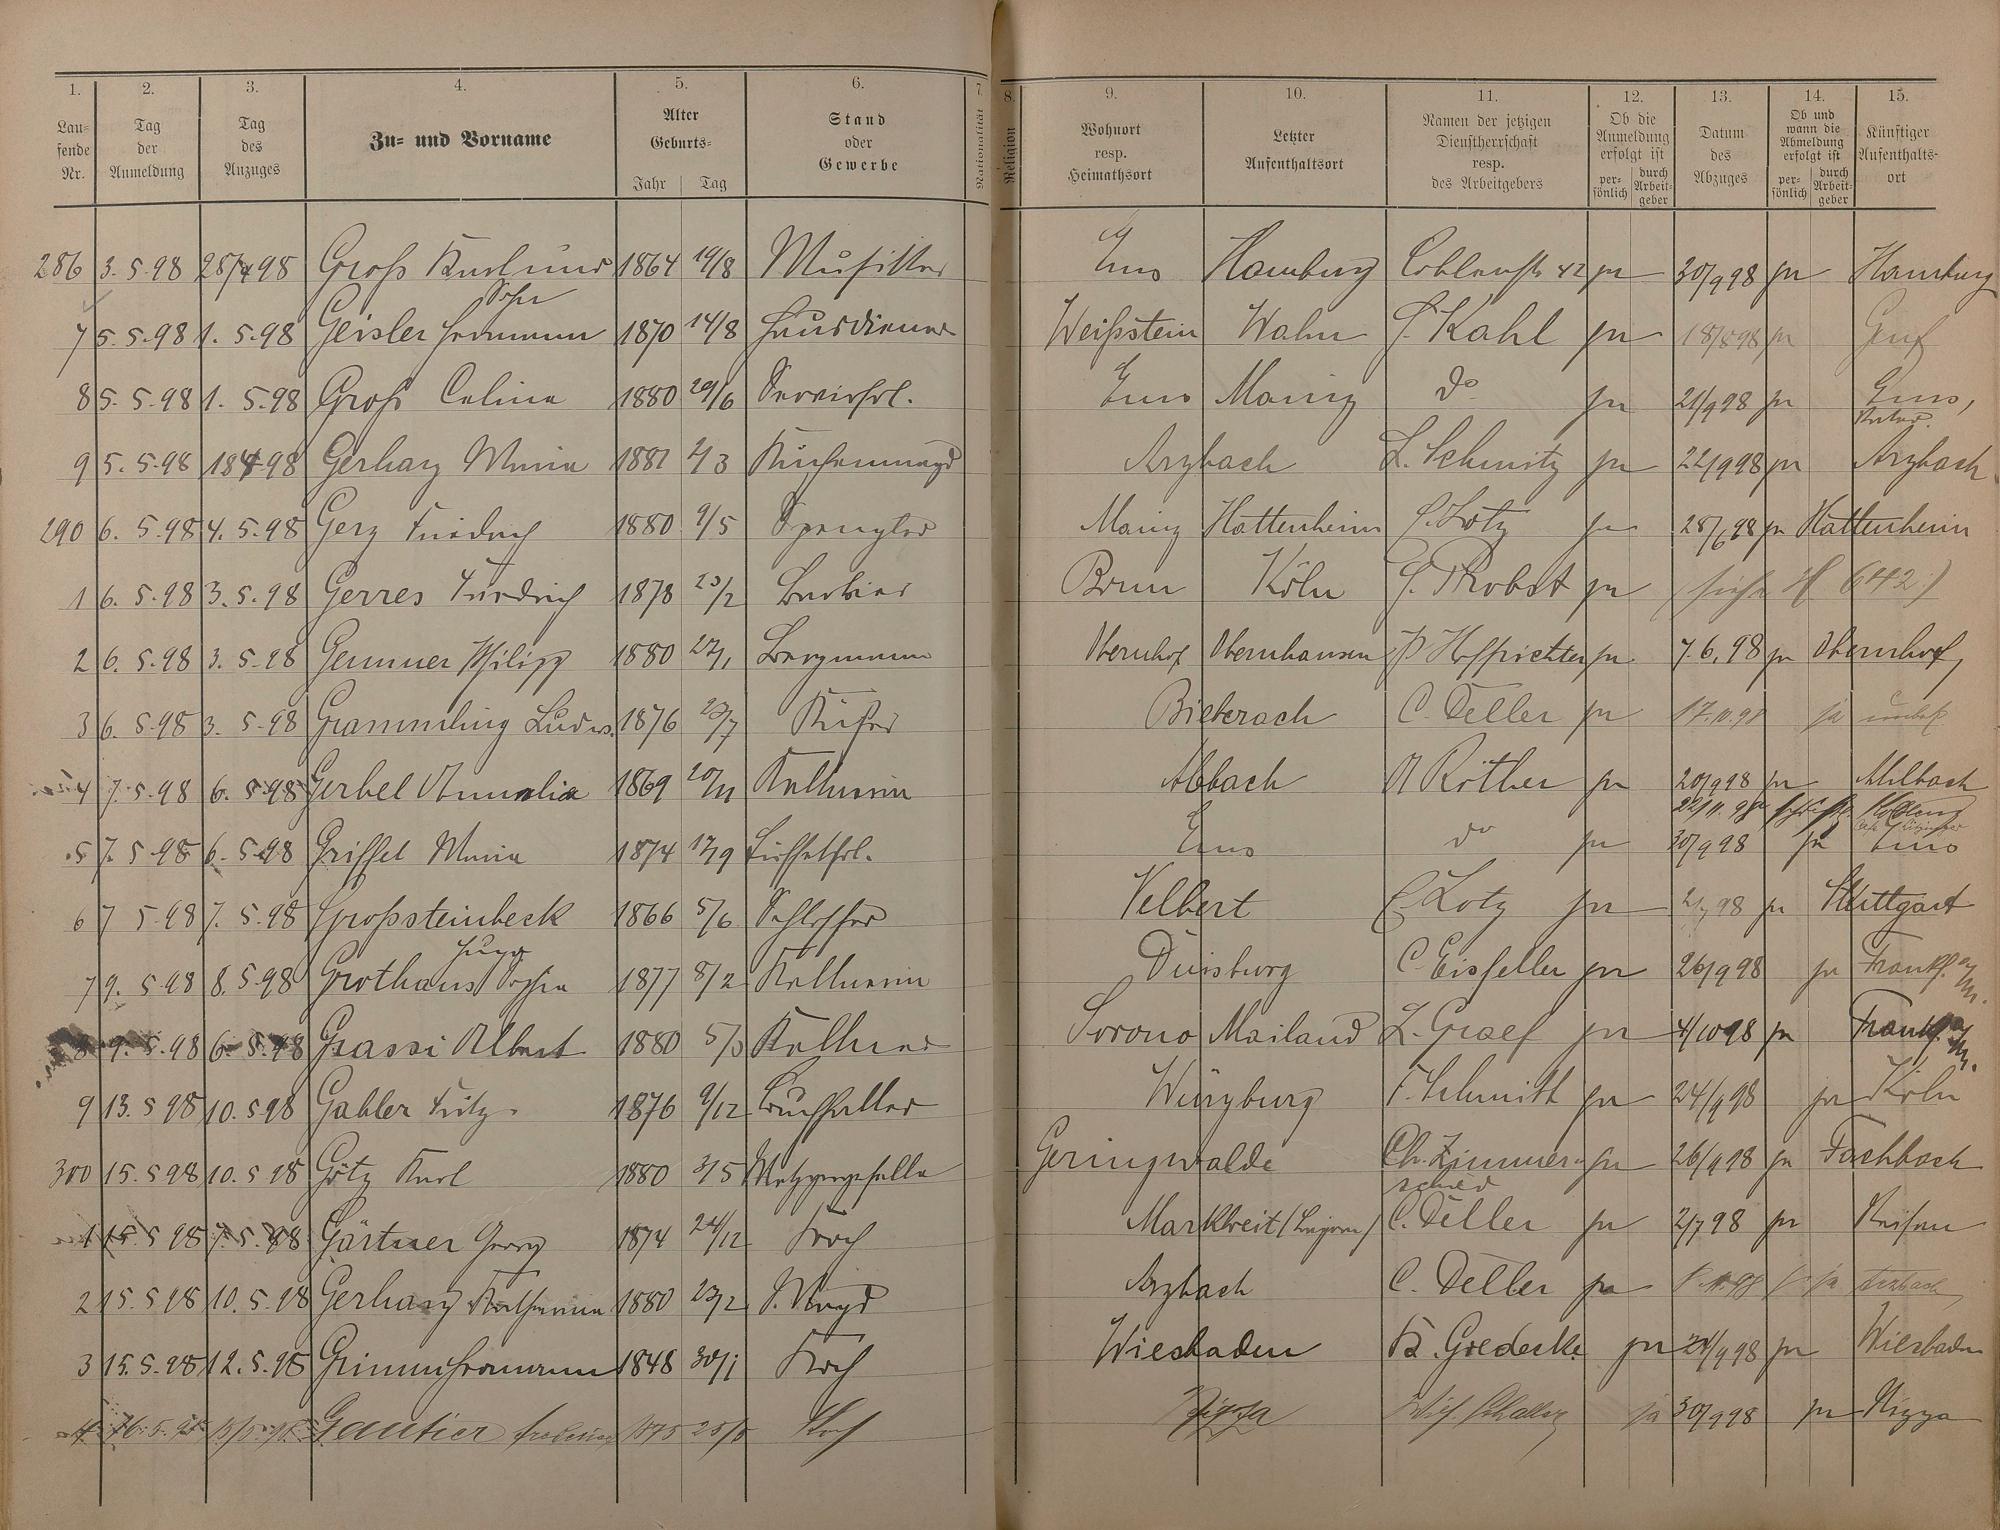 1. 2. 3. 4. 5. 6. 7. 8. 9. 10. 11. 12. 13. 14. 15.
Lau-
sende
Nr.
Tag
der
Anmeldung
Tag
des
Anzuges
Zu- und Vorname
Alter
Geburts-
Jahr Tag
Stand
oder
Gewerbe
Nationalität
Religion
Wohnort
resp.
Heimathsort
Letzter
Aufenthaltsort
Namen der jetzigen
Dienstherrschaft
resp.
des Arbeitgebers
Ob die
Anmeldung
erfolgt ist
per-
sönlich
durch
Arbeit-
geber
Datum
des
Abzuges
Ob und
wann die
Abmeldung
erfolgt ist
per-
sönlich
durch
Arbeit-
geber
Künftiger
Aufenthalts-
ort
286 3. 5. 98 28/4 98 Groß Karl und 1864 19/8 Musiker Ems Hamburg Coblenzstr. 42 ja 30/9 98 ja Hamburg
Sohn
7 5. 5. 98 1. 5. 98 Geisler Hermann 1870 14/8 Hausdiener Weißstein Wahn Kahl ja 18/5 98 ja Genf
8 5. 5. 98 1. 5. 98 Groß Celina 1880 29/6 Servirfrl. Ems Mainz do ja 21/9 98 ja Ems,
9 5. 5. 98 18 4 98 Gerharz Maria 1881 2/3 Küchenmagd Arzbach L. Schmitz ja 22/9 98 ja Arzbach
290 6. 5. 98 4. 5. 98 Gerz Friedrich 1880 9/5 Spengler Mainz Hattenheim Lotz ja 28/6 98 ja Hattenheim
1 6. 5. 98 3. 5. 98 Gerres Friedrich 1878 23/2 Barbier Bonn Köln Probst ja (siehe 642)
2 6. 5. 98 3. 5. 98 Gemmer Philipp 1880 27/1 Bergmann Obernhof Obernhausen P Hoffrichter ja 7. 6. 98 ja Obernhof,
3 6. 5. 98 3. 5. 98 Grammling Ludw. 1876 23/7 Küfer Bieberach C. Deller ja 17. 11. 98 ja unbek.
4 7. 5. 98 6. 5. 98 Gerbel Annalia 1869 20/11 Kellnerin Ahlbach A Röther ja 20/9 98 ja Ahlbach
5 7. 5 98 6. 5. 98 Griffel Maria 1874 17/9 Büffetfrl. Ems do ja 30/9 98 ja Ems
6 7 5. 98 7. 5. 98 Großsteinbeck 1866 5/6 Schlosser Velbert C Lotz ja 2/7 98 ja Stuttgart
Hugo
7 9. 5 98 8. 5 98 Grothaus Sophia 1877 8/2 Kellnerin Duisburg C. Eisfeller ja 26/9 98 ja Frankf. a/M.
8 9. 5. 98 6. 5. 98 Grassi Albert 1880 5/3 Kellner Sorono Mailand L. Graef ja 4/10 98 ja Frankf. a/M.
9 13. 5 98 10. 5 98 Gabler Fritz 1876 9/12 Buchhalter Würzburg F. Schmith ja 24/9 98 ja Köln
300 15. 5 98 10. 5 98 Götz Karl 1880 3/5 Metzgergeselle Geringwalde Ch. Zimmer- ja 26/9 98 ja Fachbach
sched
1 15. 5 98 7. 5. 98 Gärtner Georg 1874 24/12 Koch Marktbreit (Bayern) C. Deller ja 2/7 98 ja Reisen
2 15. 5 98 10. 5. 98 Gerharz Katharina 1880 23/2 Magd Arzbach C. Deller ja 98 ja Arzbach,
3 15. 5. 98 12. 5. 98 Grimm Hermann 1848 30/1 Koch Wiesbaden Gredecke ja 24/9 98 ja Wiesbaden
4 16. 5. 98 Gautier 1875 Koch Nizza ja 30/9 98 ja Nizza